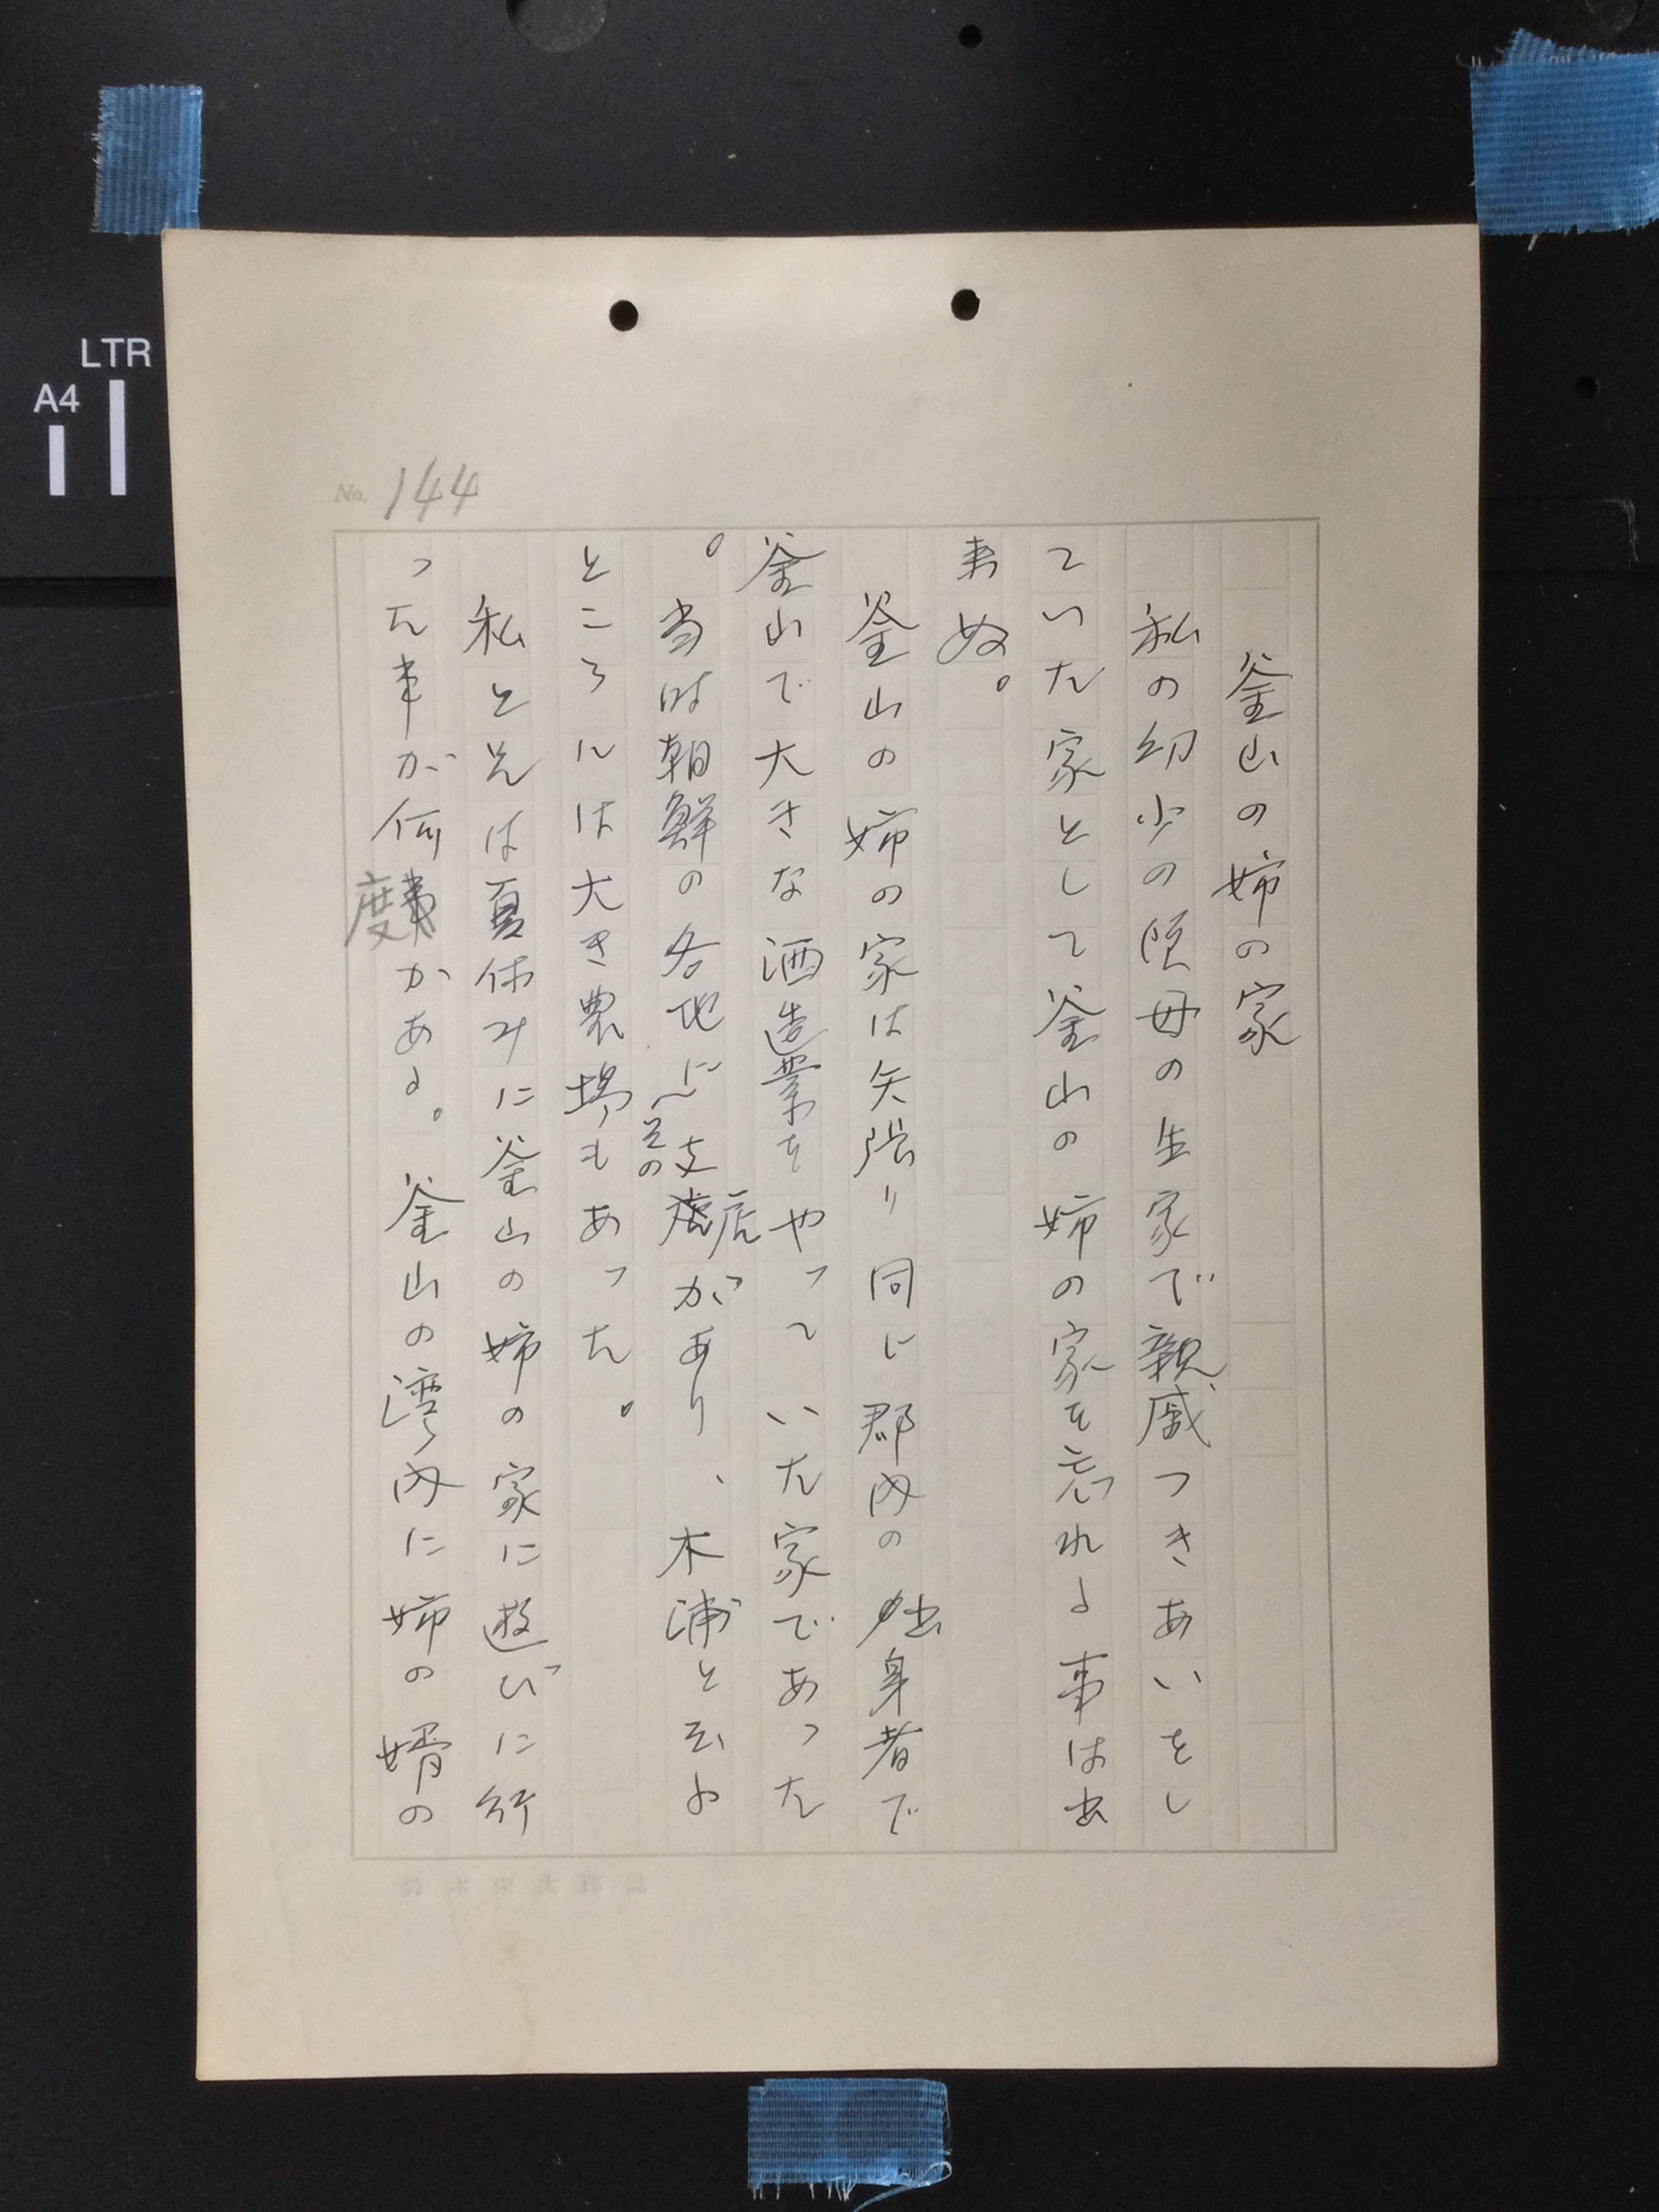 LTR
A4
No. 144
釜山の姉の家
私の幼少の頃母の生家で親戚つきあいをし
ていた家として釜山の姉の家を忘れる事は出
来ぬ。
釜山の姉の家は矢張り同じ郡内の出身者で
釜山で大きな酒造業をやっていた家であった
。当時朝鮮の各地にその支店があり、木浦と云ふ
ところには大き農場もあった。
私と兄は夏休みに釜山の姉の家に遊びに行
った事が何度かある。釜山の湾内に姉の婿の